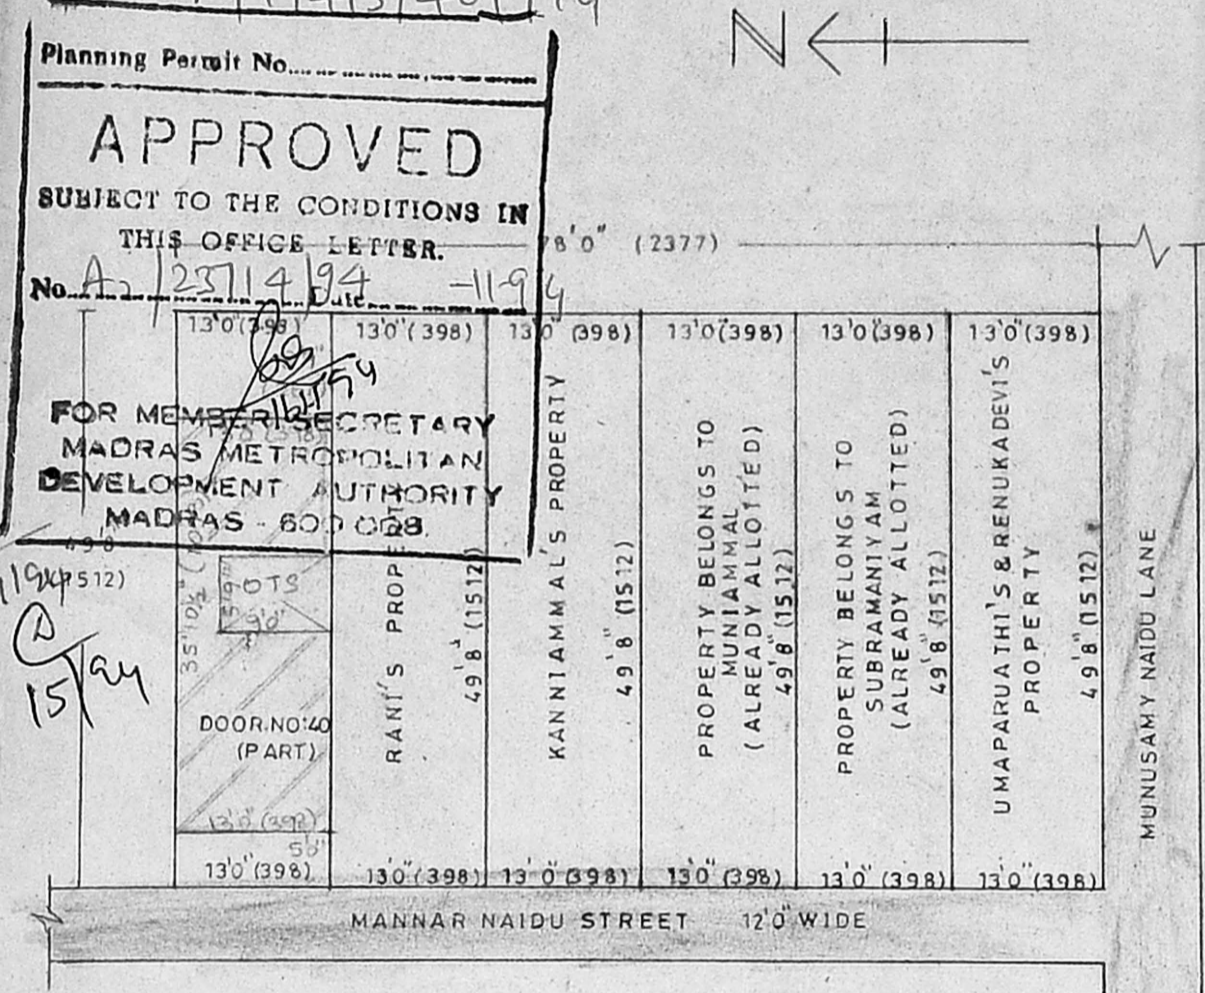 N
Planning Permit No.
APPROVED
SUBJECT TO THE CONDITIONS IN
THIS OFFICE LETTER.
78'0" (2377)
No. /23714/94 Date -11-94
13'0"(398)
13'0"(398)
13'0" (398)
13'0"(398)
13'0"(398)
13'0"(398)
FOR MEMBER SECRETARY
MADRAS METROPOLITAN
DEVELOPMENT AUTHORITY
MADRAS - 600 008.
49'8"
(1512)
15/ 94
35'10½"
OTS
DOOR.NO:40
(PART)
13'0" (398)
5'0"
RANI'S PROPE
49'8" (1512)
KANNIAMMAL'S PROPERTY
49'8" (1512)
PROPERTY BELONGS TO
MUNIAMMAL
(ALREADY ALLOTTED)
49'8" (1512)
PROPERTY BELONGS TO
SUBRAMANIYAM
(ALREADY ALLOTTED)
49'8" (1512)
UMAPARUATHI'S & RENUKADEVI'S
PROPERTY
49'8" (1512)
MUNUSAMY NAIDU LANE
13'0"(398)
13'0"(398)
13'0"(398)
13'0"(398)
13'0"(398)
13'0"(398)
MANNAR NAIDU STREET 12'0" WIDE